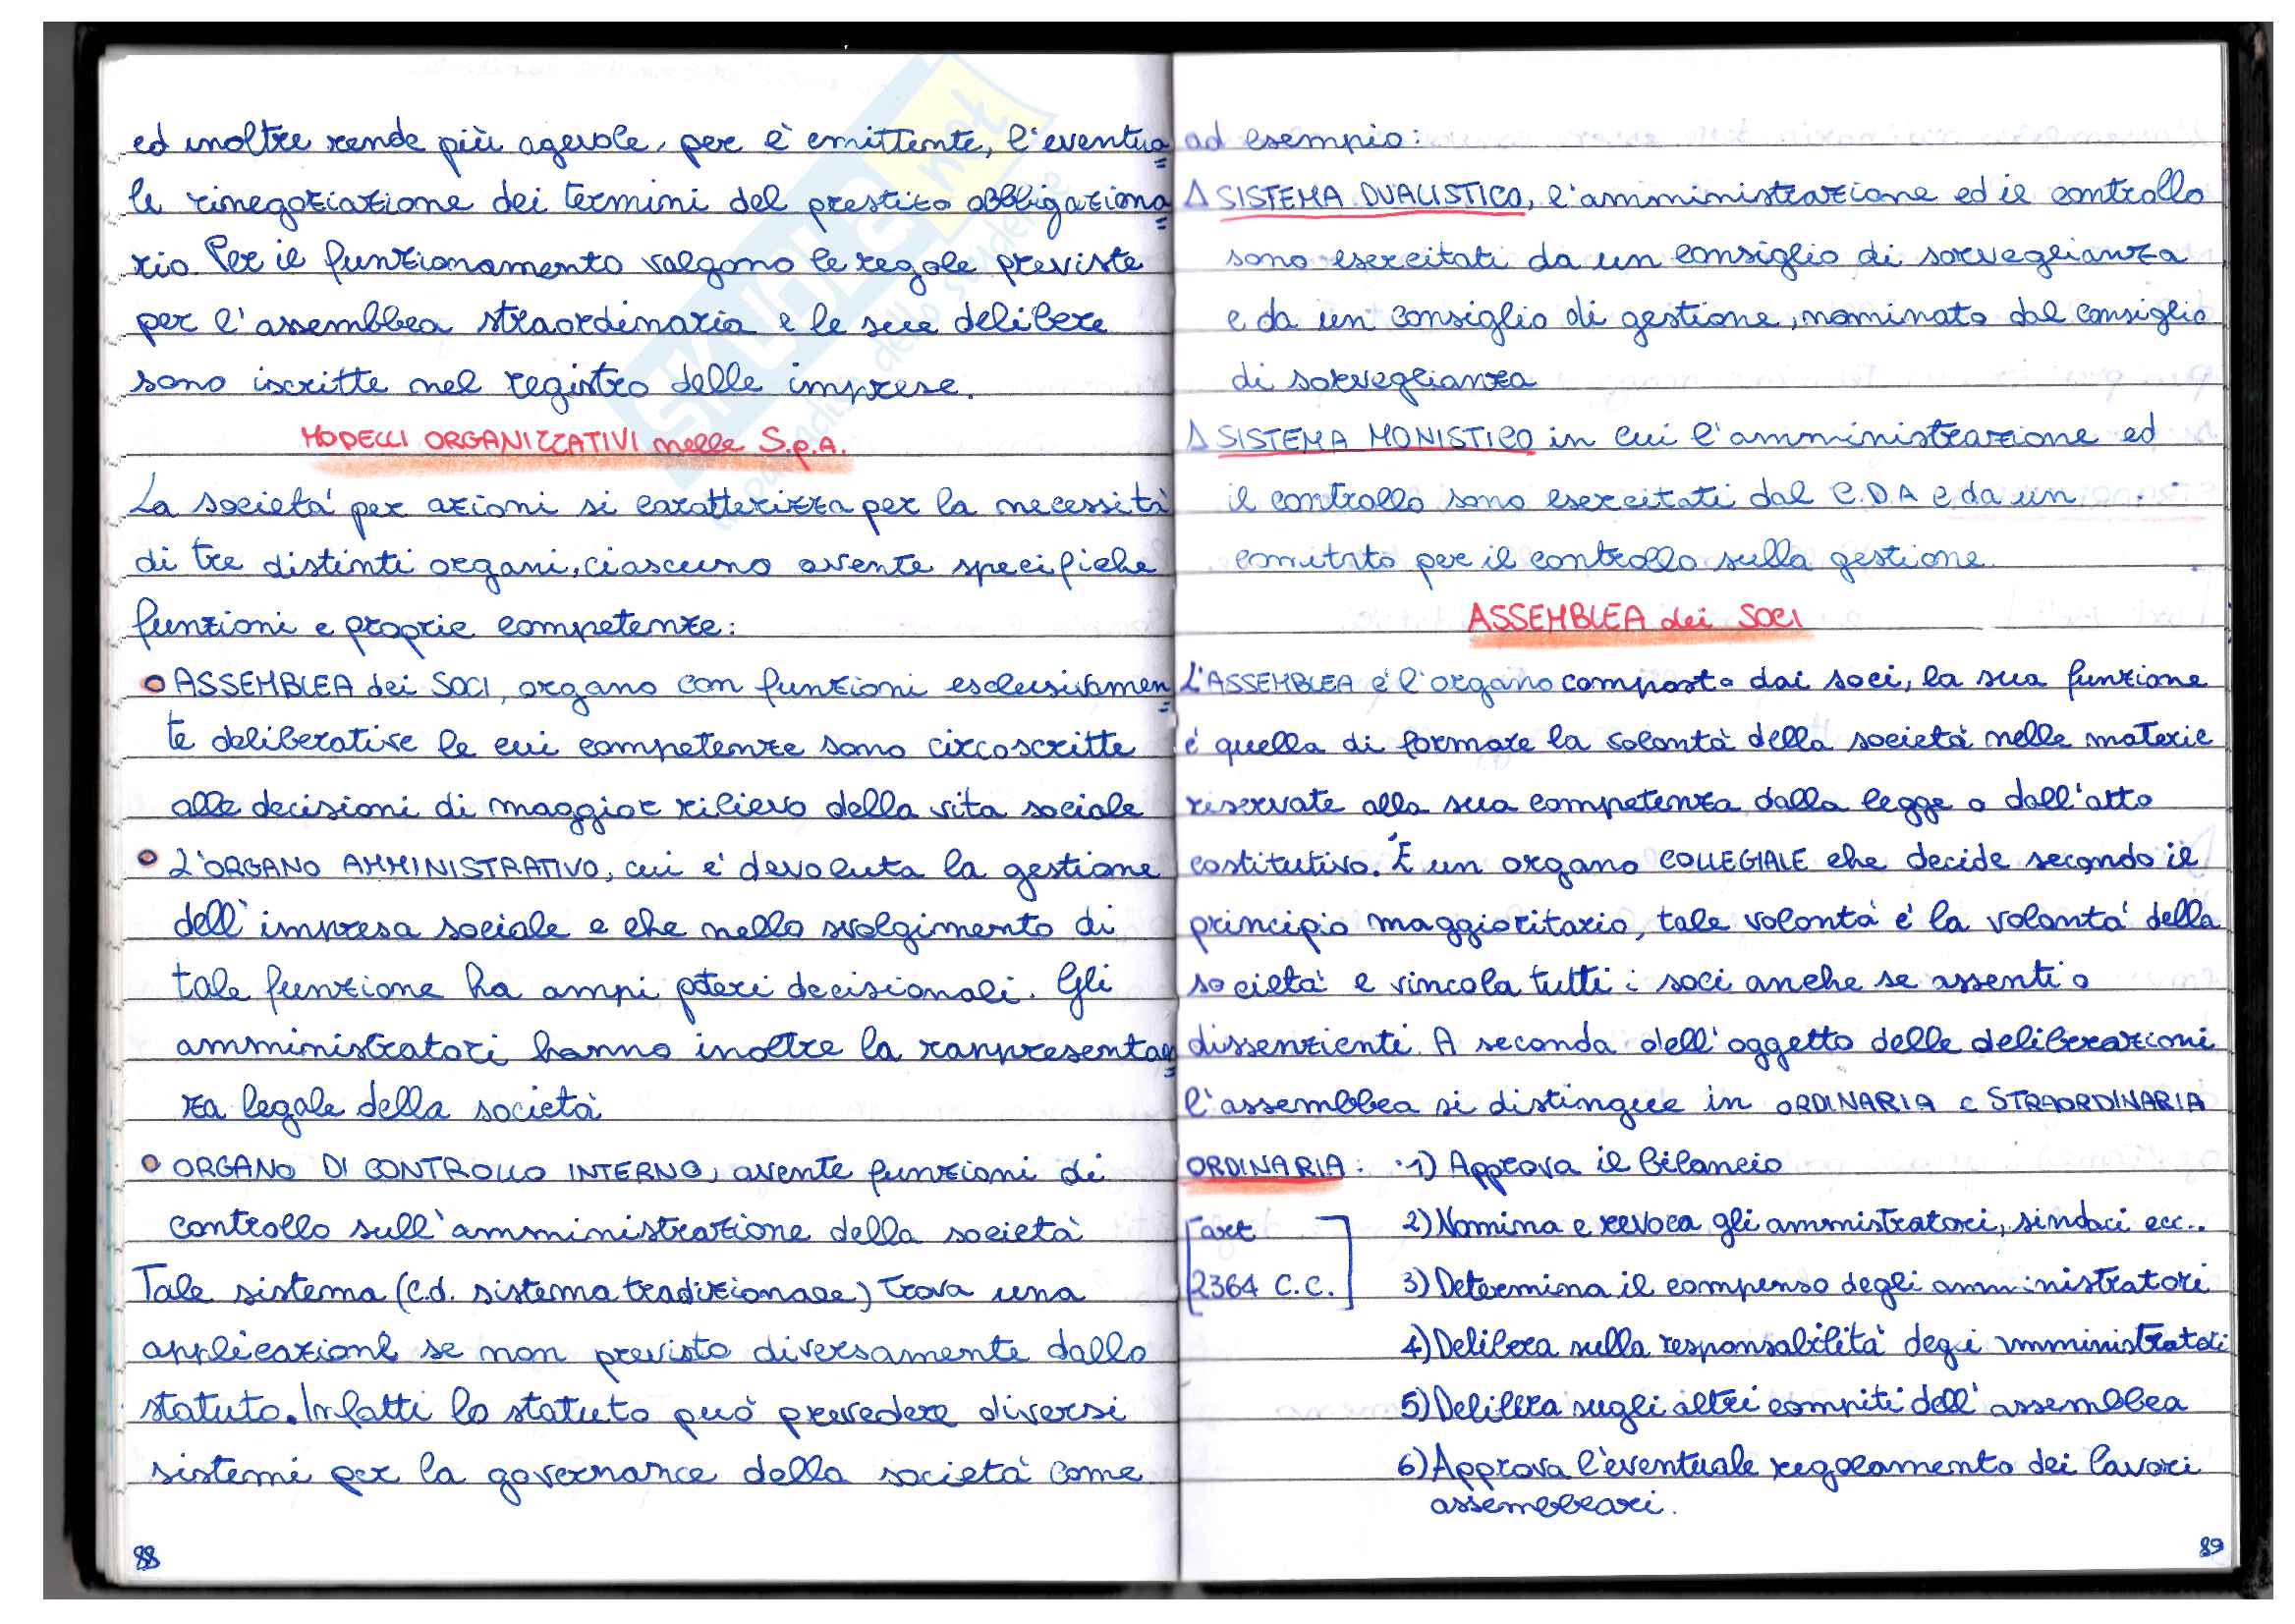 ed inoltre rende più agevole, per l'emittente, l'eventua
le rinegoziazione dei termini del prestito obbligaziona
rio. Per il funzionamento valgono le regole previste
per l'assemblea straordinaria e le sue delibere
sono iscritte nel registro delle imprese.
MODELLI ORGANIZZATIVI nelle S.p.A.
La società per azioni si caratterizza per la necessità
di tre distinti organi, ciascuno avente specifiche
funzioni e proprie competenze:
• ASSEMBLEA dei SOCI, organo con funzioni esclusivamen
te deliberative le cui competenze sono circoscritte
alle decisioni di maggior rilievo della vita sociale
• L'ORGANO AMMINISTRATIVO, cui è devoluta la gestione
dell'impresa sociale e che nello svolgimento di
tale funzione ha ampi poteri decisionali. Gli
amministratori hanno inoltre la rappresentan
za legale della società
• ORGANO DI CONTROLLO INTERNO, avente funzioni di
controllo sull'amministrazione della società
Tale sistema (c.d. sistema tradizionale) trova una
applicazione se non previsto diversamente dallo
statuto. Infatti lo statuto può prevedere diversi
sistemi per la governance della società come
88
ad esempio:
Δ SISTEMA DUALISTICO, l'amministrazione ed il controllo
sono esercitati da un consiglio di sorveglianza
e da un consiglio di gestione, nominato dal consiglio
di sorveglianza
Δ SISTEMA MONISTICO in cui l'amministrazione ed
il controllo sono esercitati dal C.D.A e da un
comitato per il controllo sulla gestione.
ASSEMBLEA dei SOCI
L'ASSEMBLEA è l'organo composto dai soci, la sua funzione
è quella di formare la volontà della società nelle materie
riservate alla sua competenza dalla legge o dall'atto
costitutivo. È un organo COLLEGIALE che decide secondo il
principio maggioritario, tale volontà è la volontà della
società e vincola tutti i soci anche se assenti o
dissenzienti. A seconda dell'oggetto delle deliberazioni
l'assemblea si distingue in ORDINARIA e STRAORDINARIA
ORDINARIA: 1) Approva il bilancio
[art 2) Nomina e revoca gli amministratori, sindaci ecc..
2364 C.C.] 3) Determina il compenso degli amministratori
4) Delibera sulla responsabilità degi amministratori
5) Delibera sugli altri compiti dell'assemblea
6) Approva l'eventuale regolamento dei lavori
assembleari.
89
SKUOLA.net